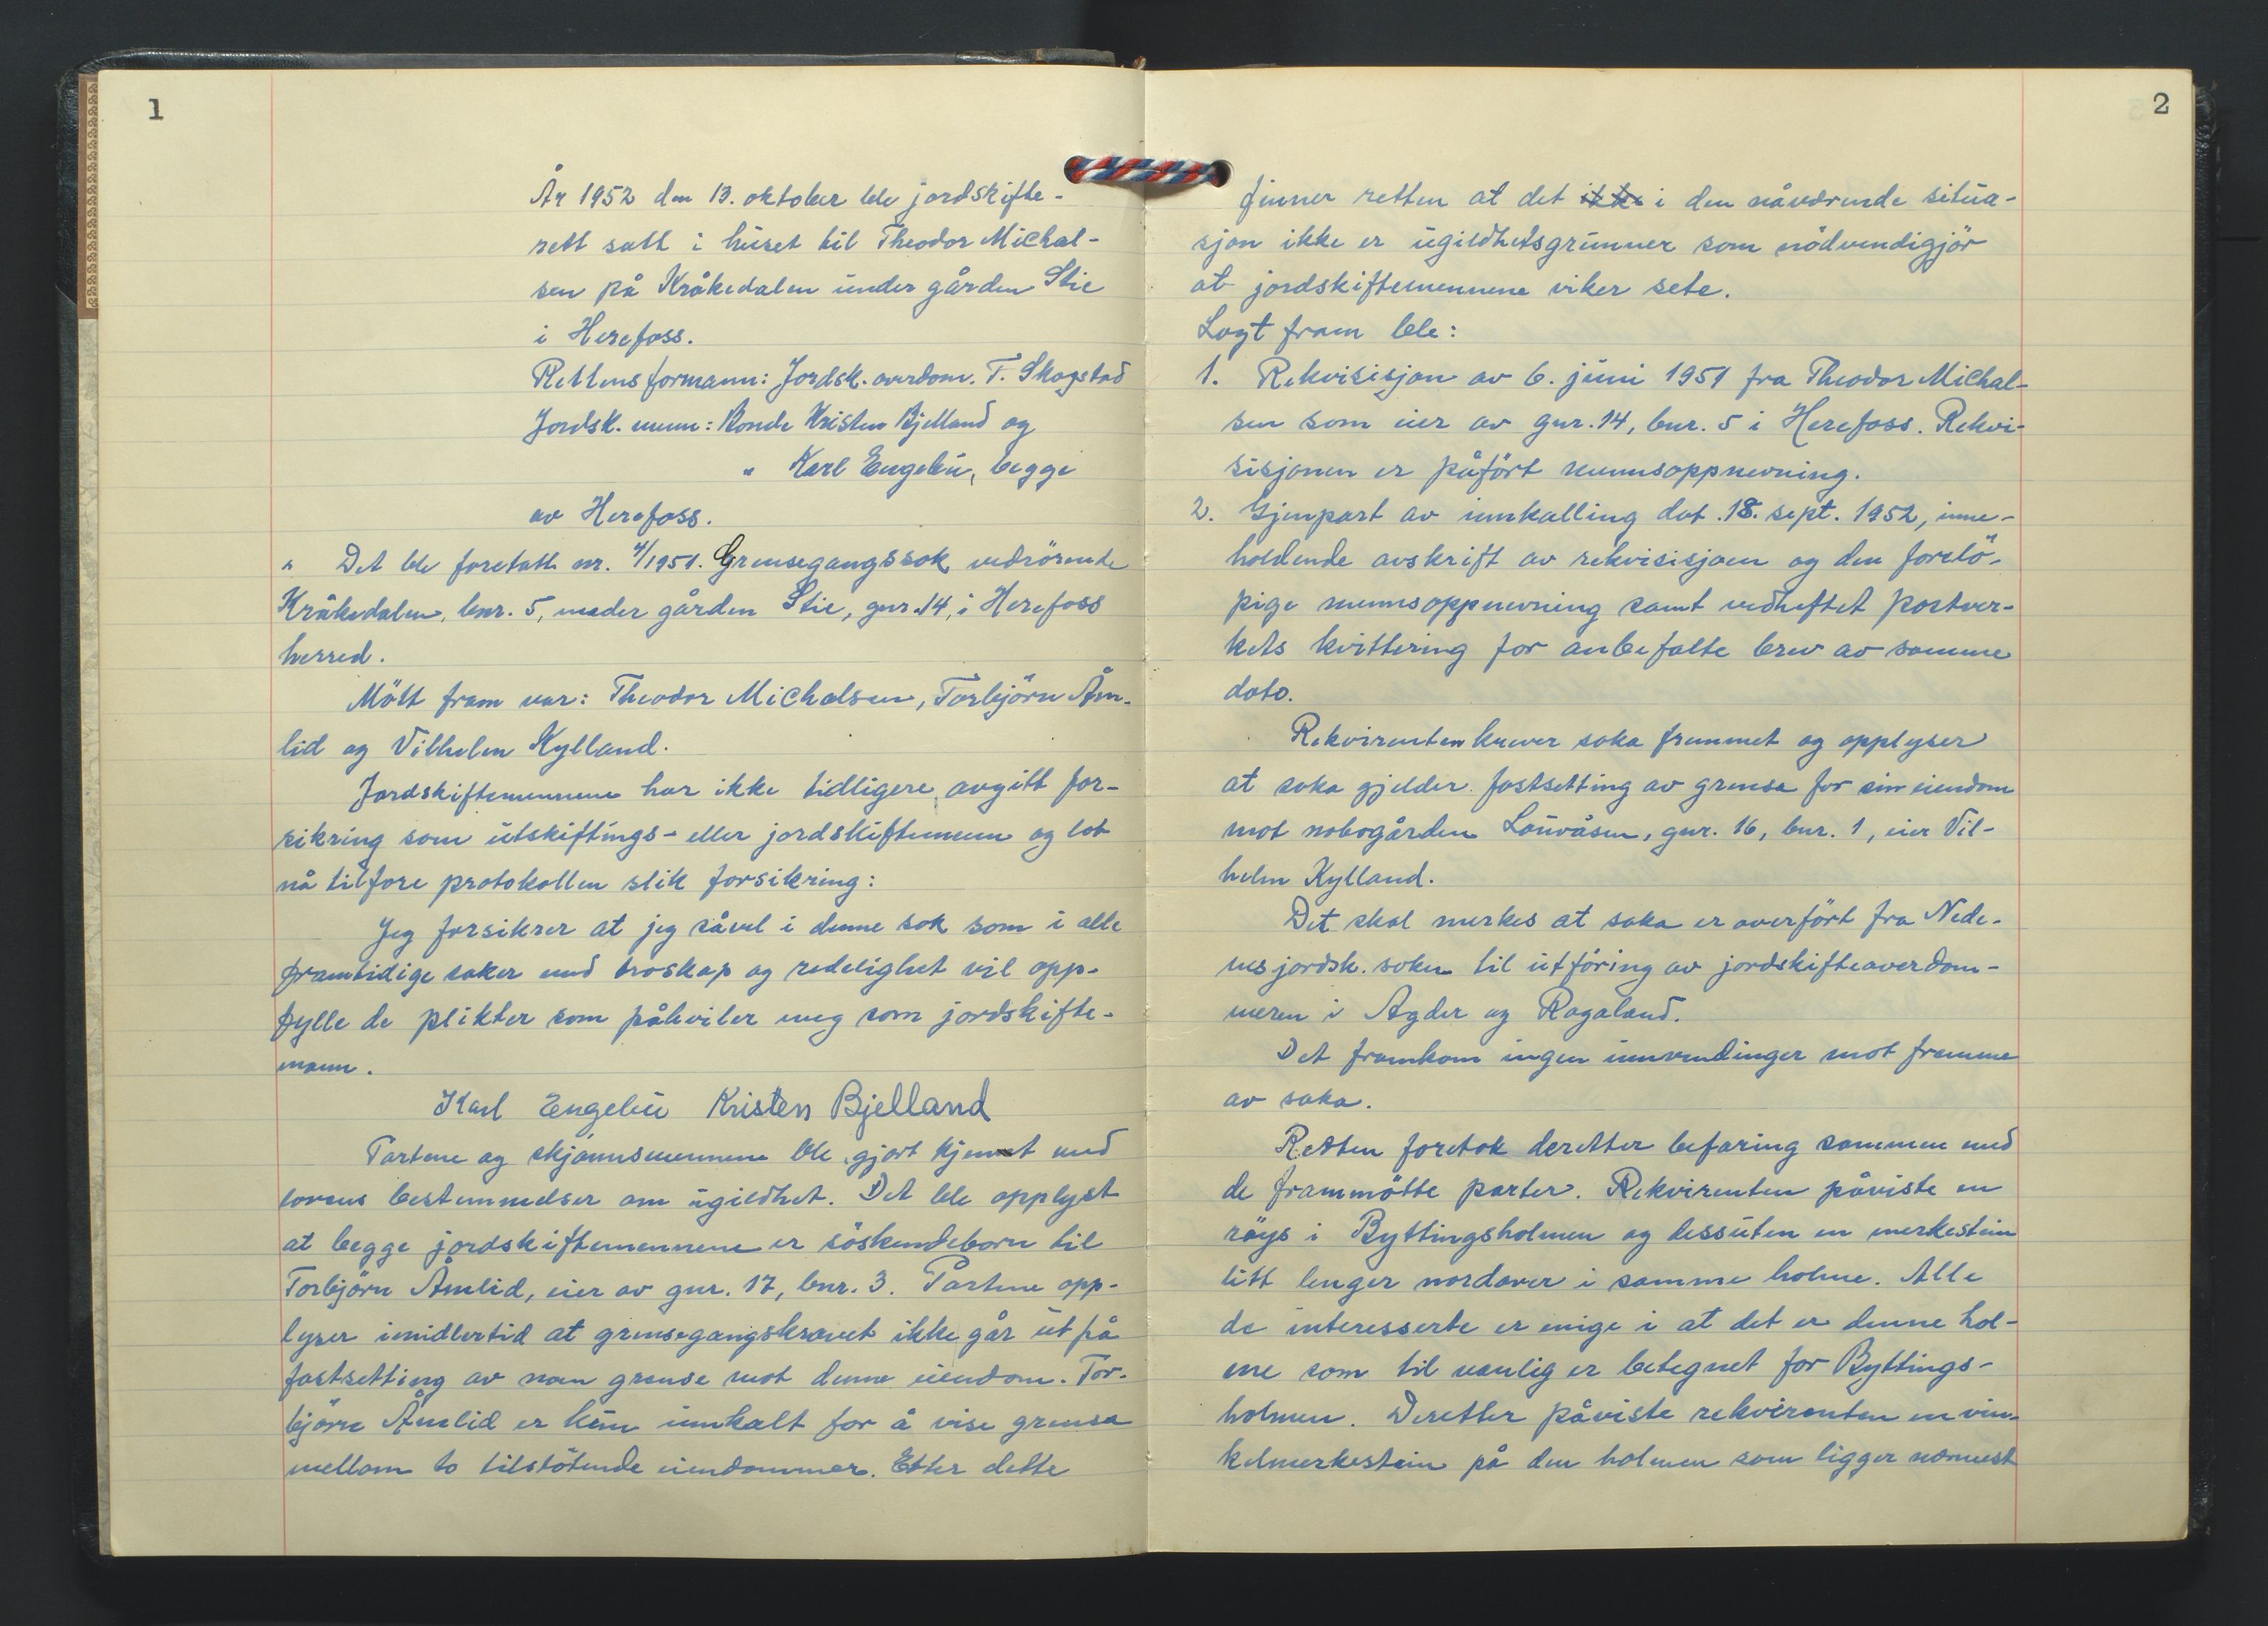 1
År 1952 den 13. oktober ble jordskifte-
rett satt i huset til Theodor Michal-
sen på Kråkedalen under gården Stie
i Herefoss.
Rettens formann: Jordsk. overdom. T. Skogstad
Jordsk. menn: Bonde Kristen Bjelland og
" Karl Engebu, begge
av Herefoss.
" Det ble foretatt nr. 4/1951. Grensegangssak vedrörende
Kråkedalen, bnr. 5, under gården Stie, gnr. 14, i Herefoss
herred.
Mött fram var: Theodor Michalsen, Torbjörn Åm-
lid og Vilhelm Kylland.
Jordskiftemennene har ikke tidligere avgitt for-
sikring som utskiftings- eller jordskiftemenn og lot
nå tilföre protokollen slik forsikring:
Jeg forsikrer at jeg såvel i denne sak som i alle
framtidige saker med troskap og redelighet vil opp-
fylle de plikter som påhviler meg som jordskifte-
mann.
Karl Engebu Kristen Bjelland
Partene og skjönnsmennene ble gjort kjent med
lovens bestemmelser om ugildhet. Det ble opplyst
at begge jordskiftemennene er söskendeborn til
Torbjörn Åmlid, eier av gnr. 17, bnr. 3. Partene opp-
lyser imidlertid at grensegangskravet ikke går ut på
fastsetting av noen grense mot denne eiendom. Tor-
björn Åmlid er kun innkalt for å vise grensa
mellom to tilstötende eiendommer. Etter dette
2
finner retten at det ikke i den nåværende situa-
sjon ikke er ugildhetsgrunner som nödvendigjör
at jordskiftemennene viker sete.
Lagt fram ble:
1. Rekvisisjon av 6. juni 1951 fra Theodor Michal-
sen som eier av gnr. 14, bnr. 5 i Herefoss. Rekvi-
sisjonen er påfört mennsoppnevning.
2. Gjenpart av innkalling dat. 18. sept. 1952, inne-
holdende avskrift av rekvisisjoen og den forelö-
pige mennsoppnevning samt vedheftet postver-
kets kvittering for anbefalte brev av samme
dato.
Rekvirenten krever saka fremmet og opplyser
at saka gjelder fastsetting av grensa for sin eiendom
mot nabogården Lauvåsen, gnr. 16, bnr. 1, eier Vil-
helm Kylland.
Det skal merkes at saka er overfört fra Nede-
nes jordsk. sokn til utföring av jordskifteoverdom-
meren i Agder og Rogaland.
Det framkom ingen innvendinger mot fremme
av saka.
Retten foretok deretter befaring sammen med
de frammötte parter. Rekvirenten påviste en
röys i Byttingsholmen og dessuten en merkestein
litt lenger nordover i samme holme. Alle
de interesserte er enige i at det er denne hol-
me som til vanlig er betegnet for Byttings-
holmen. Deretter påviste rekvirenten en vin-
kelmerkestein på den holmen som ligger nærmest